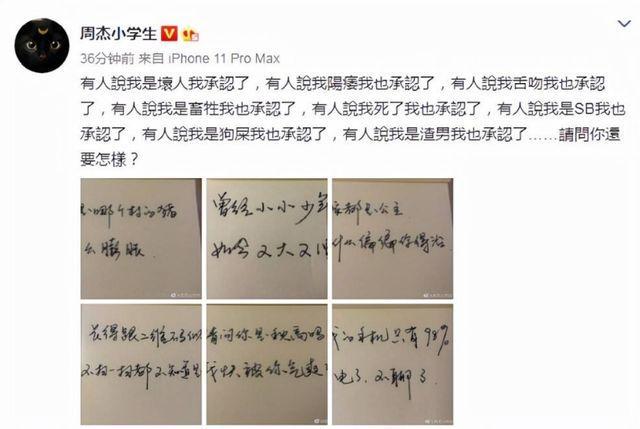 周杰小学生
36分钟前 来自 iPhone 11 Pro Max
有人說我是壞人我承認了，有人說我陽痿我也承認了，有人說我舌吻我也承認
了，有人說我是畜牲我也承認了，有人說我死了我也承認了，有人說我是SB我也
承認了，有人說我是狗屎我也承認了，有人說我是渣男我也承認了……請問你還
要怎樣？
是哪个村的猪
么膨胀
曾经小小少年
如今又大又
家都是公主
什么偏偏你得治
长得跟二维码似
不扫一扫都不知道是
请问你是秋高吗
我快被你气爽
我的手机只有98%
电了，不聊了